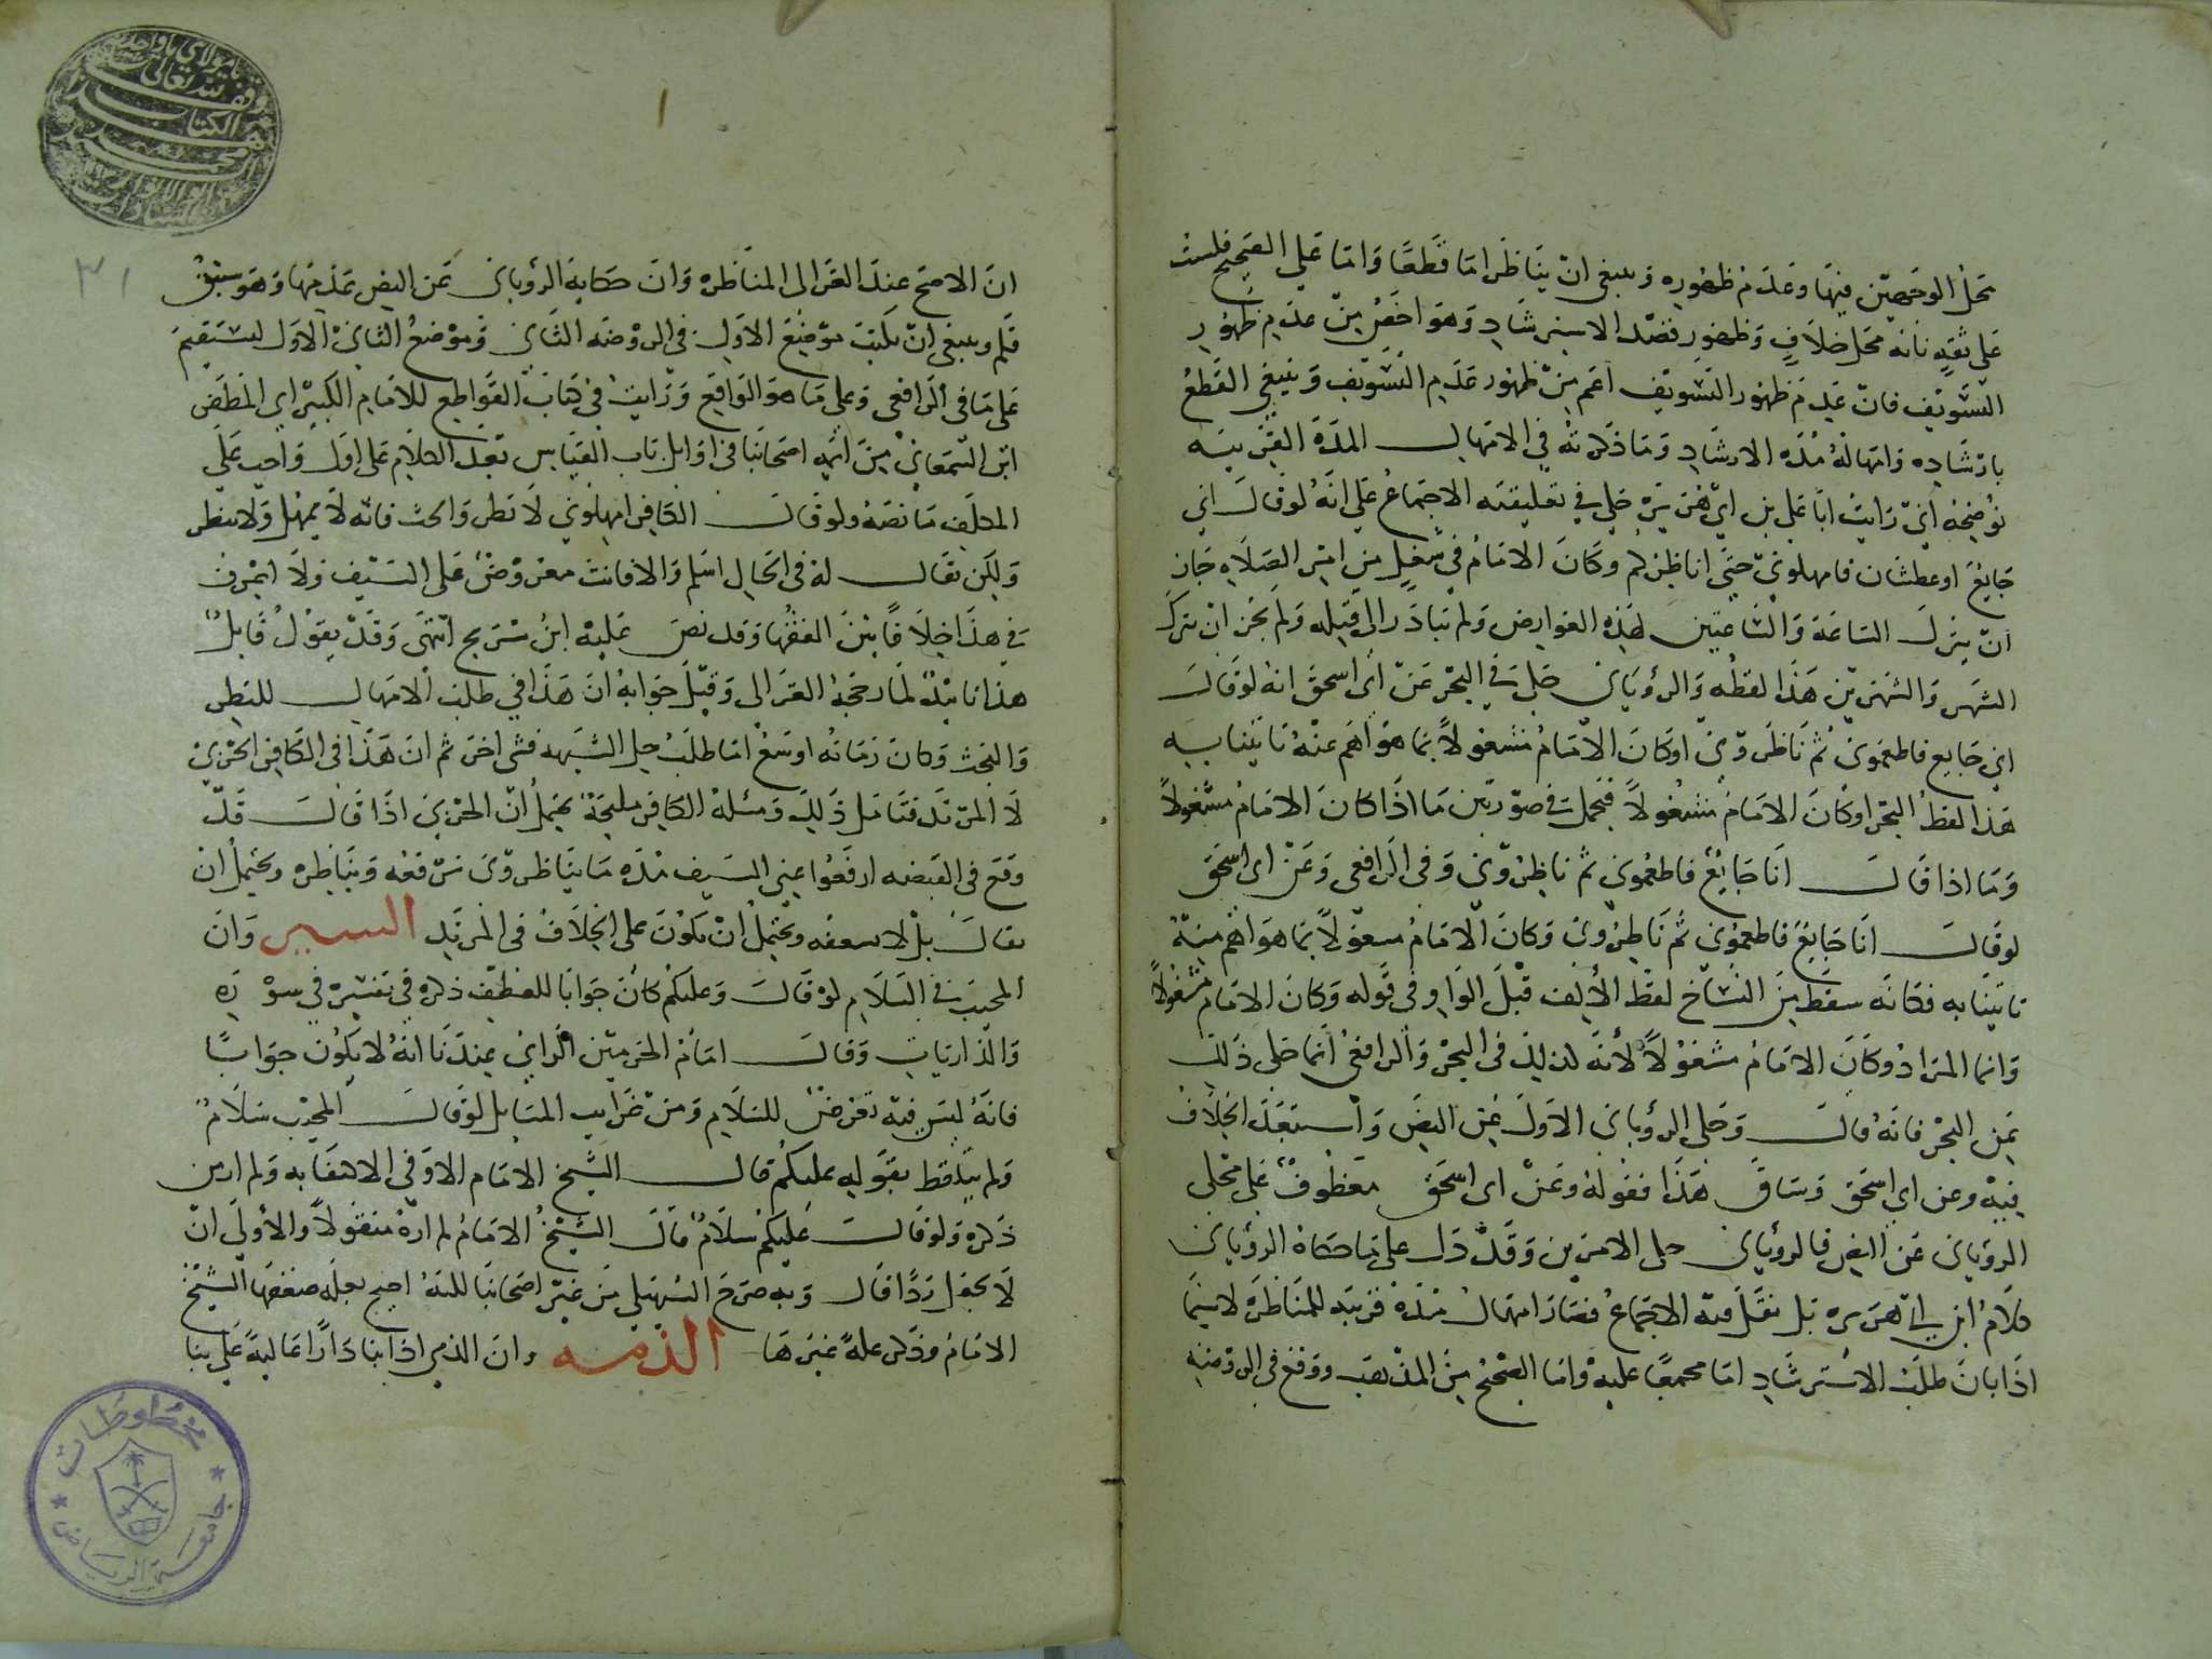 محل الوجهين فيها وعدم ظهوره وينبغي ان يناظر اما قطعا واما على الصحيح فلست
على ثقة بانه محل خلاف وظهور قصد الاسترشاد وهو اخص من عدم ظهور
التسويف فان عدم ظهور التسويف اعم من ظهور عدم التسويف وينبغي القطع
بارشاده وامهاله مدة الارشاد وما ذكرته في الامهال المدة القريبة
يوضحه اني رايت ابا علي بن ابي هريرة حكى في تعليقته الاجماع على انه لو قال اني
جايع او عطشان فامهلوني حتى اناظركم وكان الامام في شغل من امر الصلاه جاز
ان يترك الساعة والساعتين لهذه العوارض ولم يبادر الى قتله ولم يجز ان يترك
الشهر والشهرين هذا لفظه والروياني حكى في البحر عن ابي اسحق انه لو قال
اني جايع فاطعموني ثم ناظروني او كان الامام مشغولا بما هو اهم عنه تانينا به
هذا لفظ البحر او كان الامام مشغولا فيحمل في صورتين ما اذا كان الامام مشغولا
وما اذا قال انا جايع فاطعموني ثم ناظروني وفي الرافعي وعن ابي اسحق
لو قال انا جايع فاطعموني ثم ناظروني وكان الامام مشغولا بما هو اهم منه
تانينا به فكانه سقط من النساخ لفظ الالف قبل الواو في قوله وكان الامام مشغولا
وانما المراد او كان الامام مشغولا لانه كذلك في البحر والرافعي انما حكى ذلك
عن البحر فانه قال وحكى الروياني الاول عن النص واستبعد الخلاف
فيه وعن ابي اسحق وساق هذا فقوله وعن ابي اسحق معطوف على محكي
الروياني عن النص فالروياني حكى الامرين وقد دل على ما حكاه الروياني
كلام ابن ابي هريره بل نقل فيه الاجماع فصار امهال مدة قريبه للمناظره لاسيما
اذا بان طلب الاسترشاد اما مجمعا عليه واما الصحيح من المذهب ووقع في الروضه
ان الاصح عند الغزالي المناظره وان حكاية الروياني عن النص عدمها وهو سبق
قلم وينبغي ان يكتب موضع الاول في الروضه الثاني وموضع الثاني الاول ليستقيم
على ما في الرافعي وعلى ما هو الواقع ورايت في كتاب القواطع للامام الكبير ابي المظفر
ابن السمعاني من ايمه اصحابنا في اوايل باب القياس بعد الكلام على اول واجب على
المكلف ما نصه ولو قال الكافر امهلوني لانظر وابحث فانه لا يمهل ولا ينظر
ولكن يقال له في الحال اسلم والا فانت معروض على السيف ولا اعرف
في هذا خلافا بين الفقها وقد نص عليه ابن سريج انتهى وقد يقول قايل
هذا نابذ لما رجحه الغزالي وقيل جوابه ان هذا في طلب الامهال للنظر
والبحث وكان زمانه اوسع اما طلب حل الشبهه فشي اخر ثم ان هذا في الكافر الحربي
لا المرتد فتامل ذلك ومسئلة الكافر مليحة يحتمل ان الحربي اذا قال قد
وقع في القبضه ارفعوا عني السيف مده ما يناظروني نرفعه ونناظره ويحتمل ان
يقال بل لا نسعفه ويحتمل ان يكون على الخلاف في المرتد السير وان
المجيب في السلام لو قال وعليكم كان جوابا للعطف ذكره في تفسيره في سورة
والذاريات وقال امام الحرمين الراي عندنا انه لا يكون جوابا
فانه ليس فيه تعرض للسلام ومن غرايب المسايل لو قال المجيب سلام
ولم يتلفظ بقوله عليكم قال الشيخ الامام الاوفى الاكتفا به ولم ار من
ذكره ولو قال عليكم سلام قال الشيخ الامام لم اره منقولا والاولى ان
لا يجعل ردا قال وبه صرح السهيلي من غير اصحابنا لكنه احتج بعلة ضعفها الشيخ
الامام وذكر علة غيرها الذمه وان الذمي اذا بنا دارا عالية على بنا
يا مولاي يا واحد
وقف لله تعالى
الكتاب
محمد
مخطوطات
جامعة الرياض